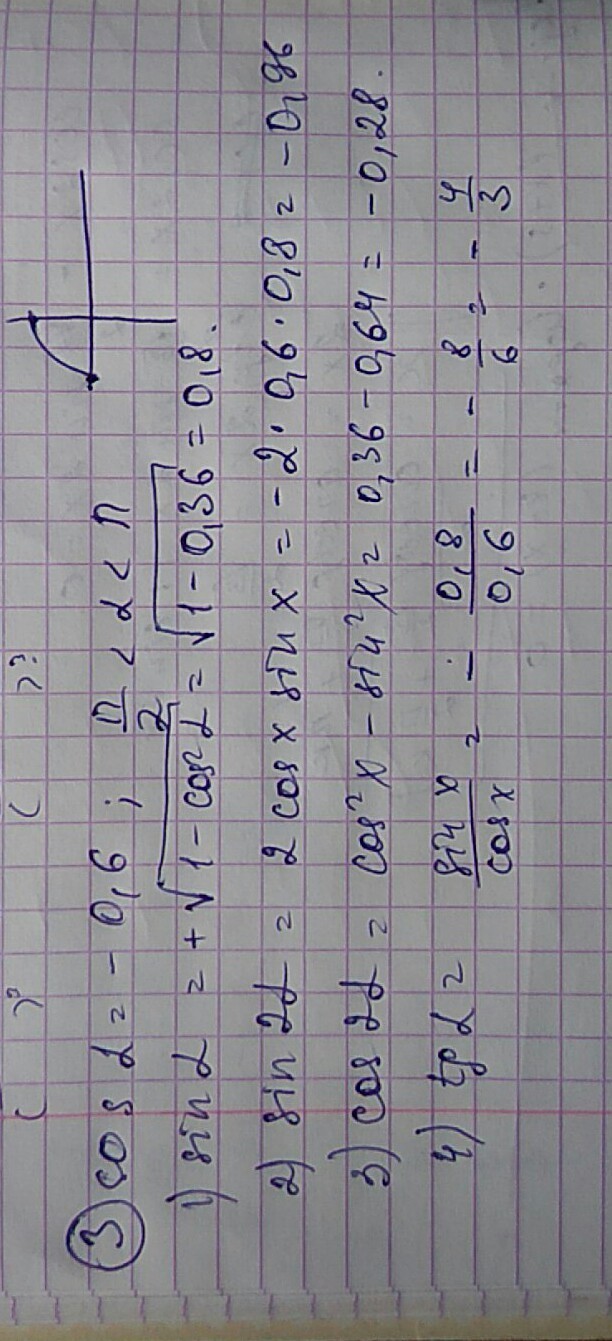 ③ cos α = - 0,6 ; п/2 < α < п
1) sin α = + √(1 - cos² α) = √(1 - 0,36) = 0,8.
2) sin 2α = 2 cos x sin x = - 2 · 0,6 · 0,8 = - 0,96
3) cos 2α = cos² x - sin² x = 0,36 - 0,64 = - 0,28.
4) tg α = sin x / cos x = - 0,8 / 0,6 = - 8/6 = - 4/3